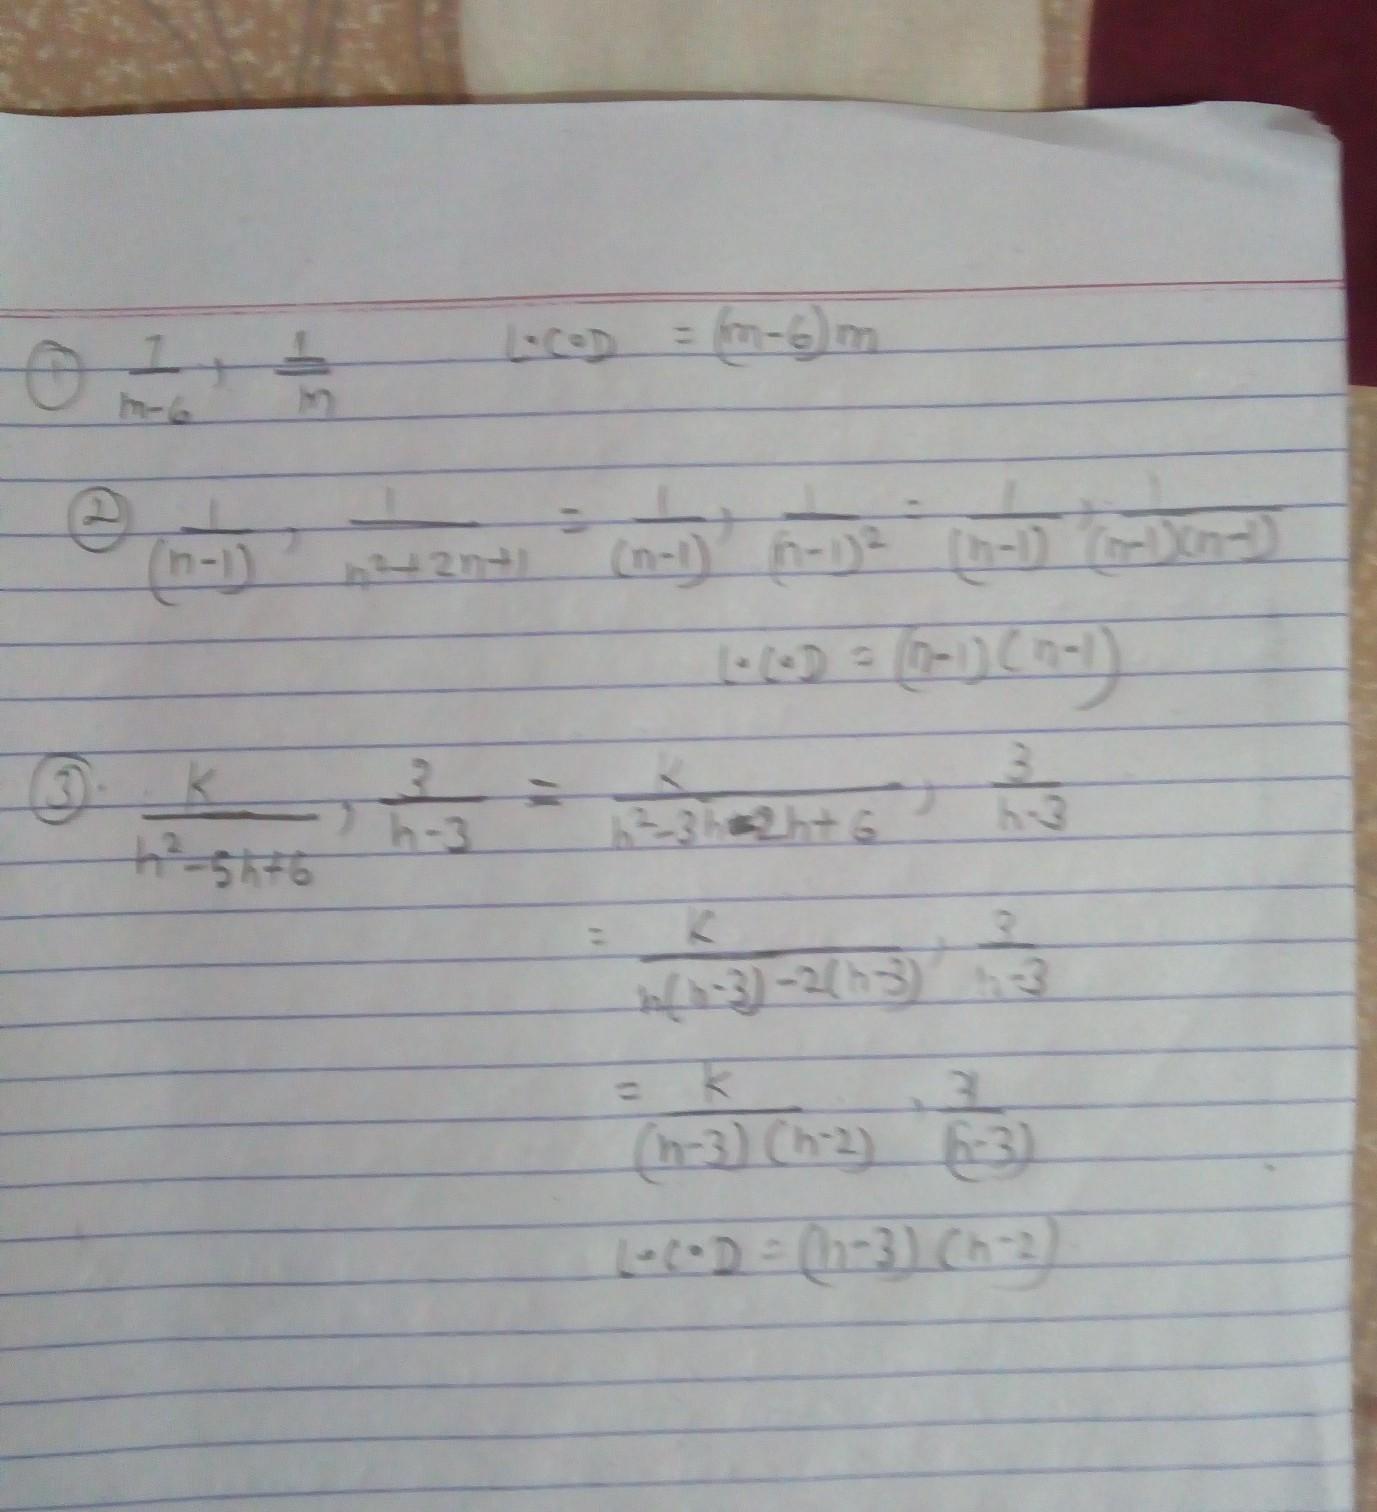 ① 7/(m-6) , 1/m L.C.D = (m-6)m
② 1/(n-1) , 1/(n²+2n+1) = 1/(n-1) , 1/(n-1)² = 1/(n-1) , 1/((n-1)(n-1))
L.C.D = (n-1)(n-1)
③. k/(h²-5h+6) , 3/(h-3) = k/(h²-3h-2h+6) , 3/(h-3)
= k/(h(h-3)-2(h-3)) , 3/(h-3)
= k/((h-3)(h-2)) , 3/(h-3)
L.C.D = (h-3)(h-2)